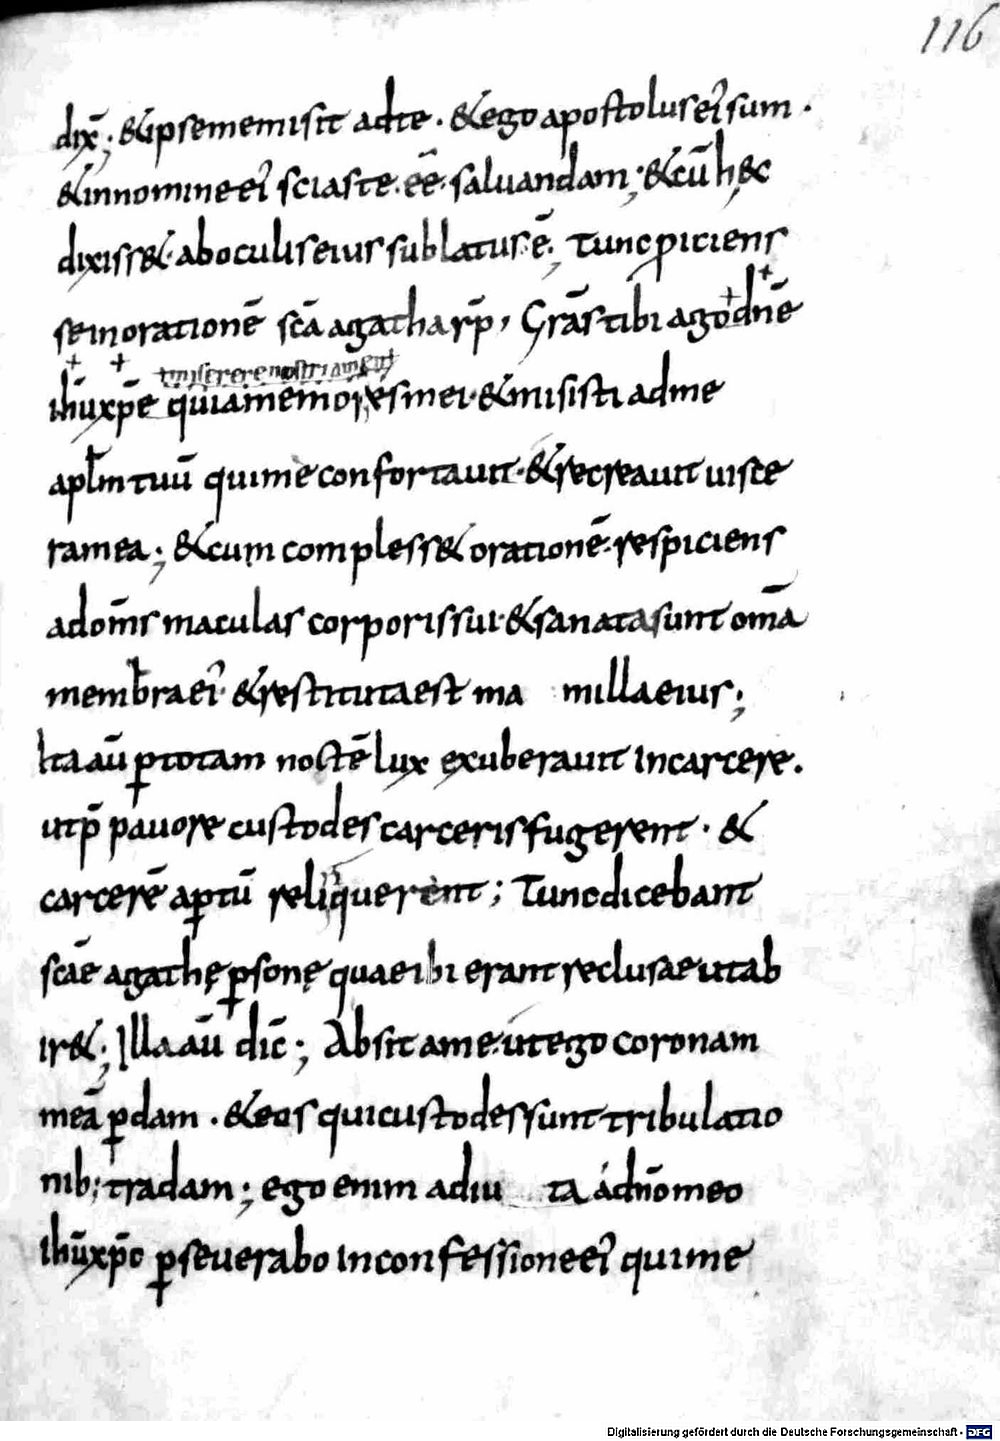 116
dix̄; & ipse me misit ad te. & ego apostolus ei᾽ sum.
& in nomine ei᾽ scias te. eē. saluandam; & cū hęc
dixiss&. ab oculis eius sublatus ē; Tunc ꝓiciens
se in orationē scā agatha rp̄, Grās tibi ago dn̄e
ihū xp̄e quia memor es mei. & misisti ad me
miserere nostri amen
apl̄m tuū qui me confortauit. & recreauit uisce
ra mea; & cum compless& orationē. respiciens
ad om̄s maculas corporis sui. & sanata sunt om̄a
membra ei᾽. & restituta est ma millae ius;
Ita aū ꝑ totam noctē lux exuberauit in carcere.
ut p̄ pauore custodes carceris fugerent. &
carcerē aꝑtū reliquerent; Tunc dicebant
scāe agathę ꝑsonę quae ibi erant reclusae ut ab
ir&; Illa aū dic̄; Absit a me. ut ego coronam
meā ꝑdam. & eos qui custodes sunt tribulatio
nib; tradam; ego enim adiu ta á dn̄o meo
ihū xp̄o ꝑseuerabo in confessione ei᾽ qui me
Digitalisierung gefördert durch die Deutsche Forschungsgemeinschaft - DFG